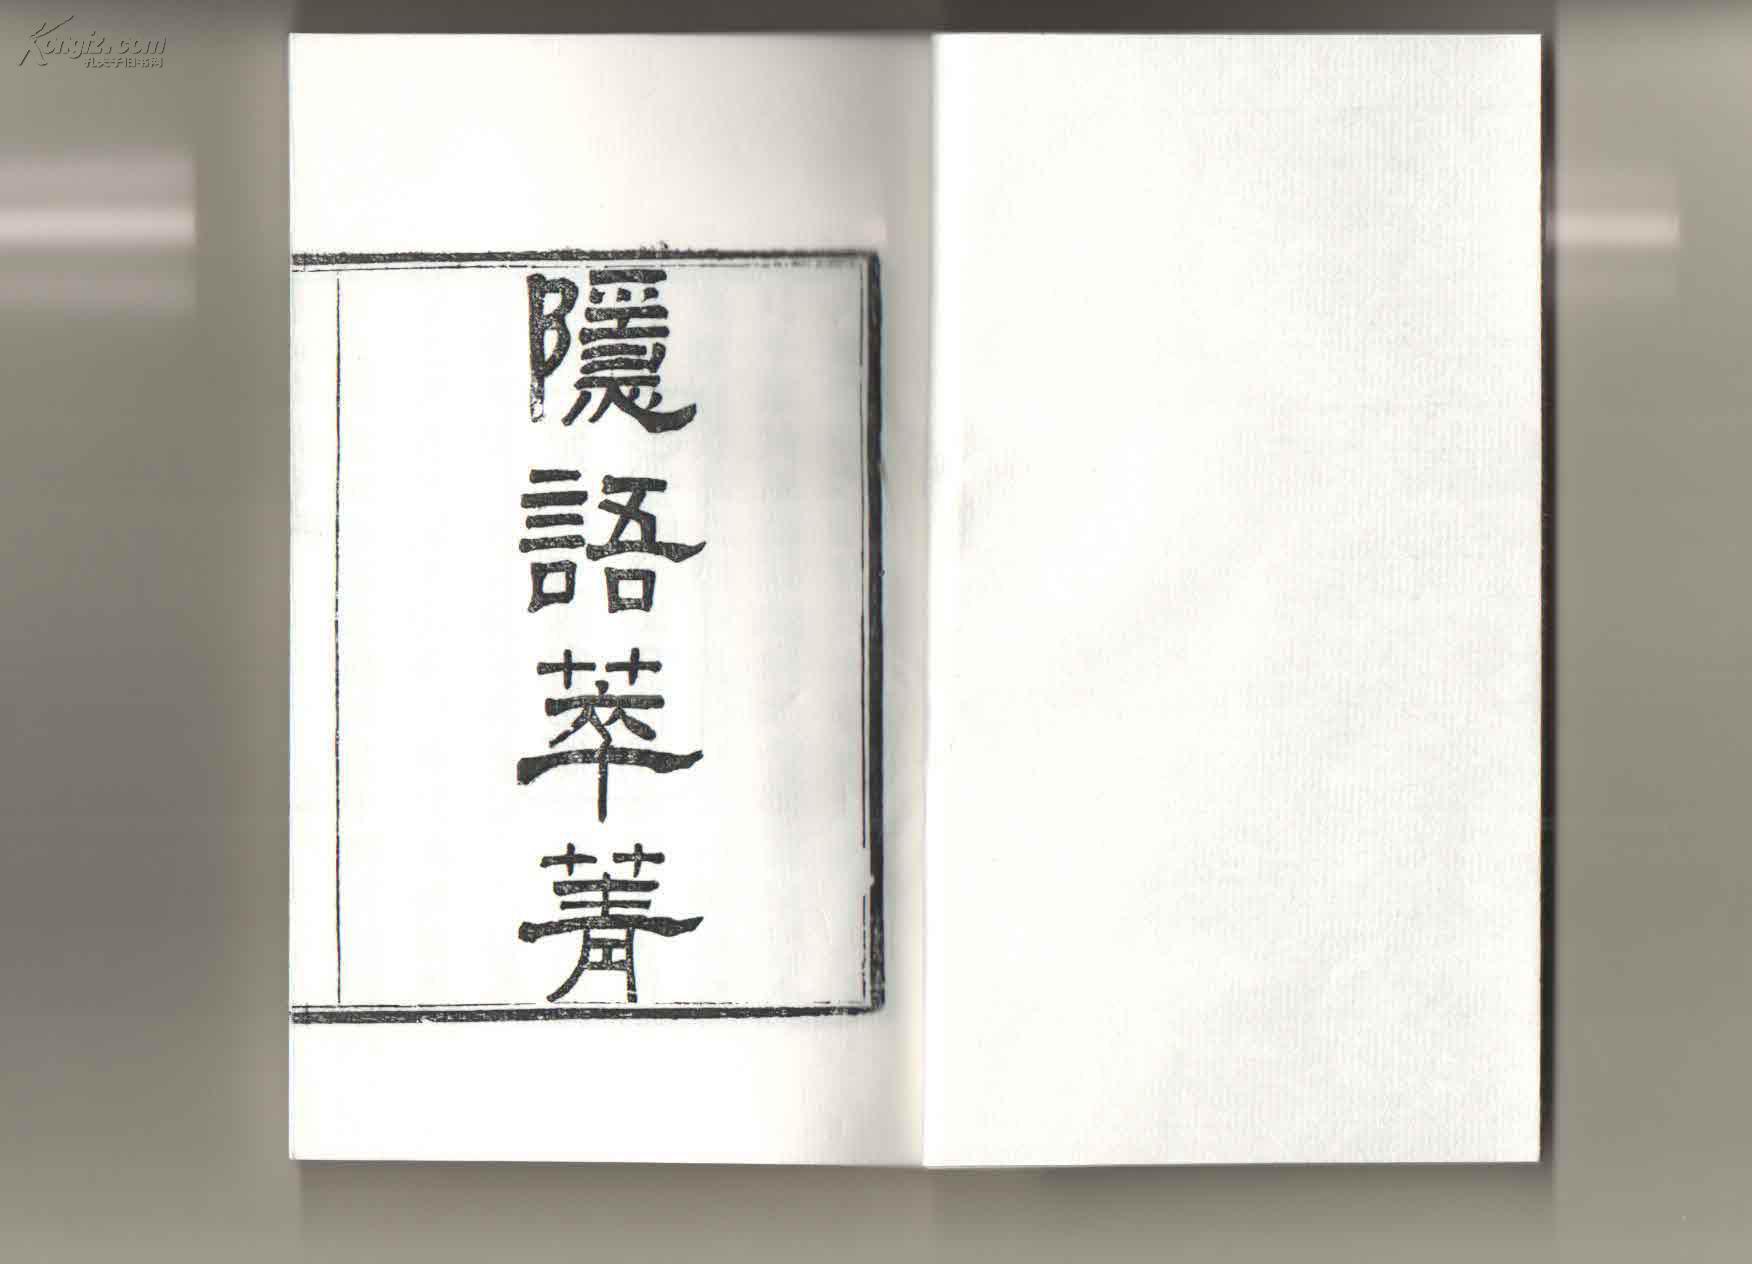 Kongfz.com
孔夫子旧书网
隱語萃菁